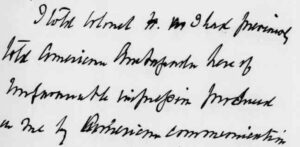 I told Colonel H. as I had previously
told American Ambassador here of
unfavourable impression produced
on me by American communication